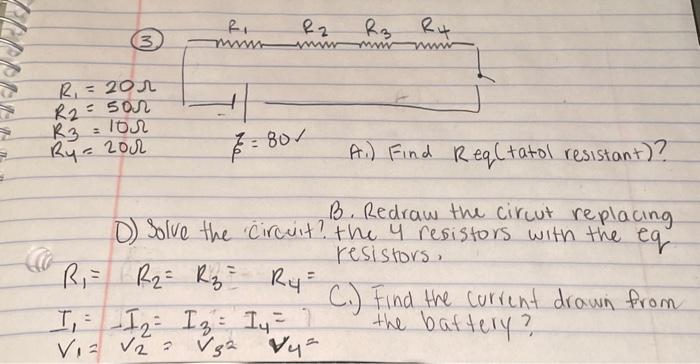 3
R1 R2 R3 R4
R1 = 20Ω
R2 = 50Ω
R3 = 10Ω
R4 = 20Ω
- = 80V
A.) Find Req(tatol resistant)?
B. Redraw the circut replacing
the 4 resistors with the eq
resistors.
C.) Find the current drawn from
the battery?
D) Solve the circuit?
R1= R2= R3= R4=
I1= I2= I3= I4=
V1= V2= V3= V4=